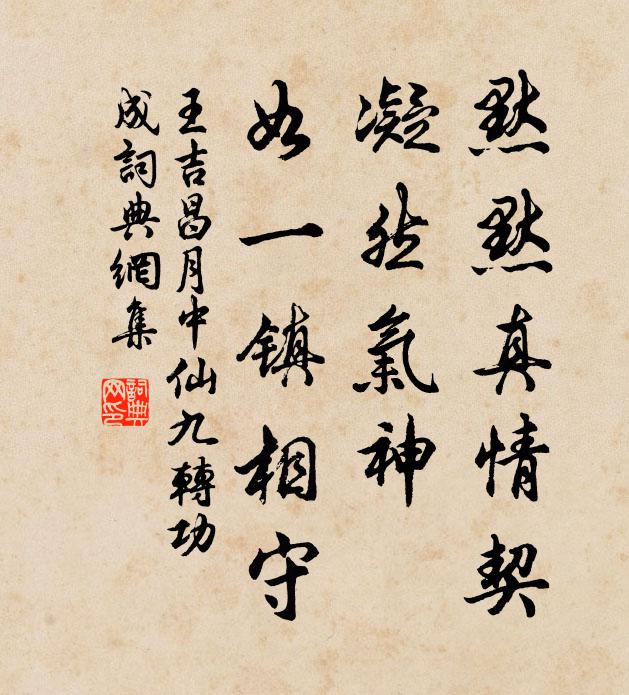 默默真情契
凝然氣神
如一鎮相守
王吉昌月中仙九轉功
成詞典網集
詞典
网印